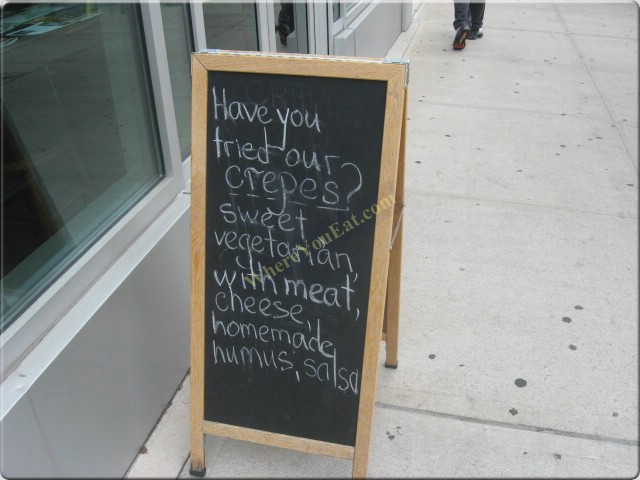 Have you
tried our
crepes?
sweet
vegetarian,
with meat,
cheese,
homemade
humus, salsa
WhereYouEat.com